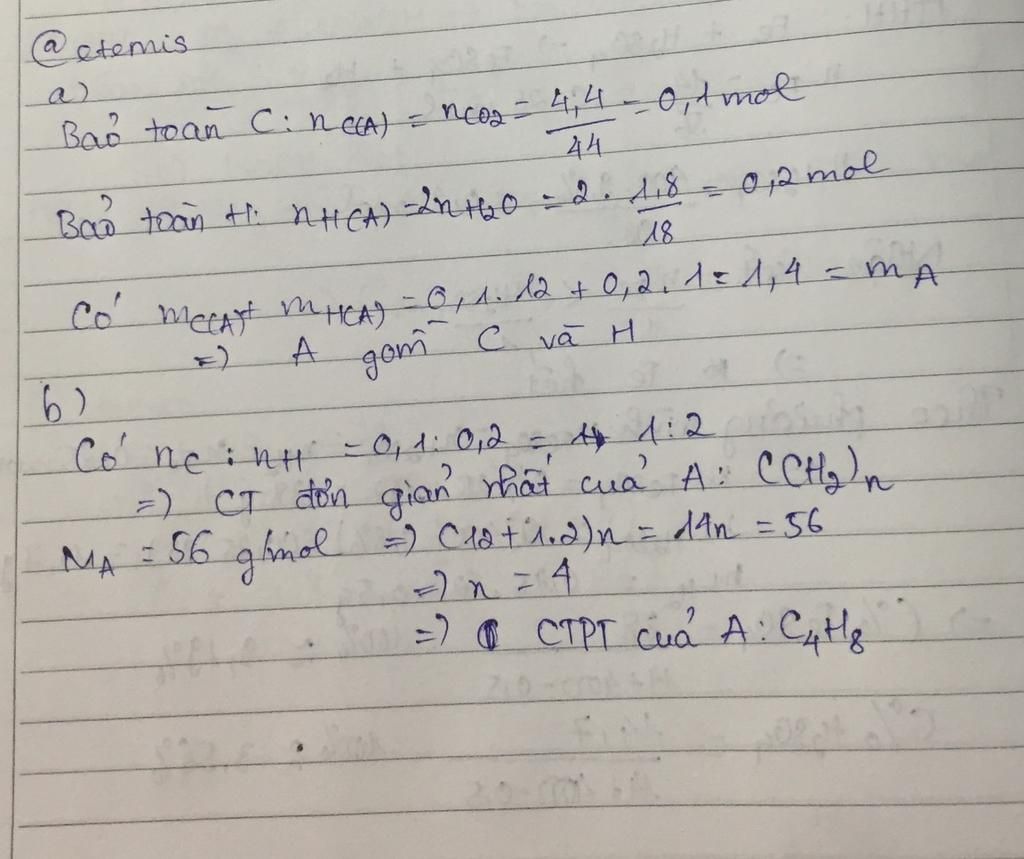 @etemis
a)
Bảo toàn C: nC(A) = nCO2 = 4,4/44 = 0,1 mol
Bảo toàn H: nH(A) = 2nH2O = 2 . 1,8/18 = 0,2 mol
Có mC(A) + mH(A) = 0,1.12 + 0,2.1 = 1,4 = mA
=) A gồm C và H
b)
Có nC : nH = 0,1 : 0,2 = 1 : 2
=) CT đơn giản nhất của A : (CH2)n
MA = 56 g/mol =) (12 + 1.2)n = 14n = 56
=) n = 4
=) CTPT của A : C4H8